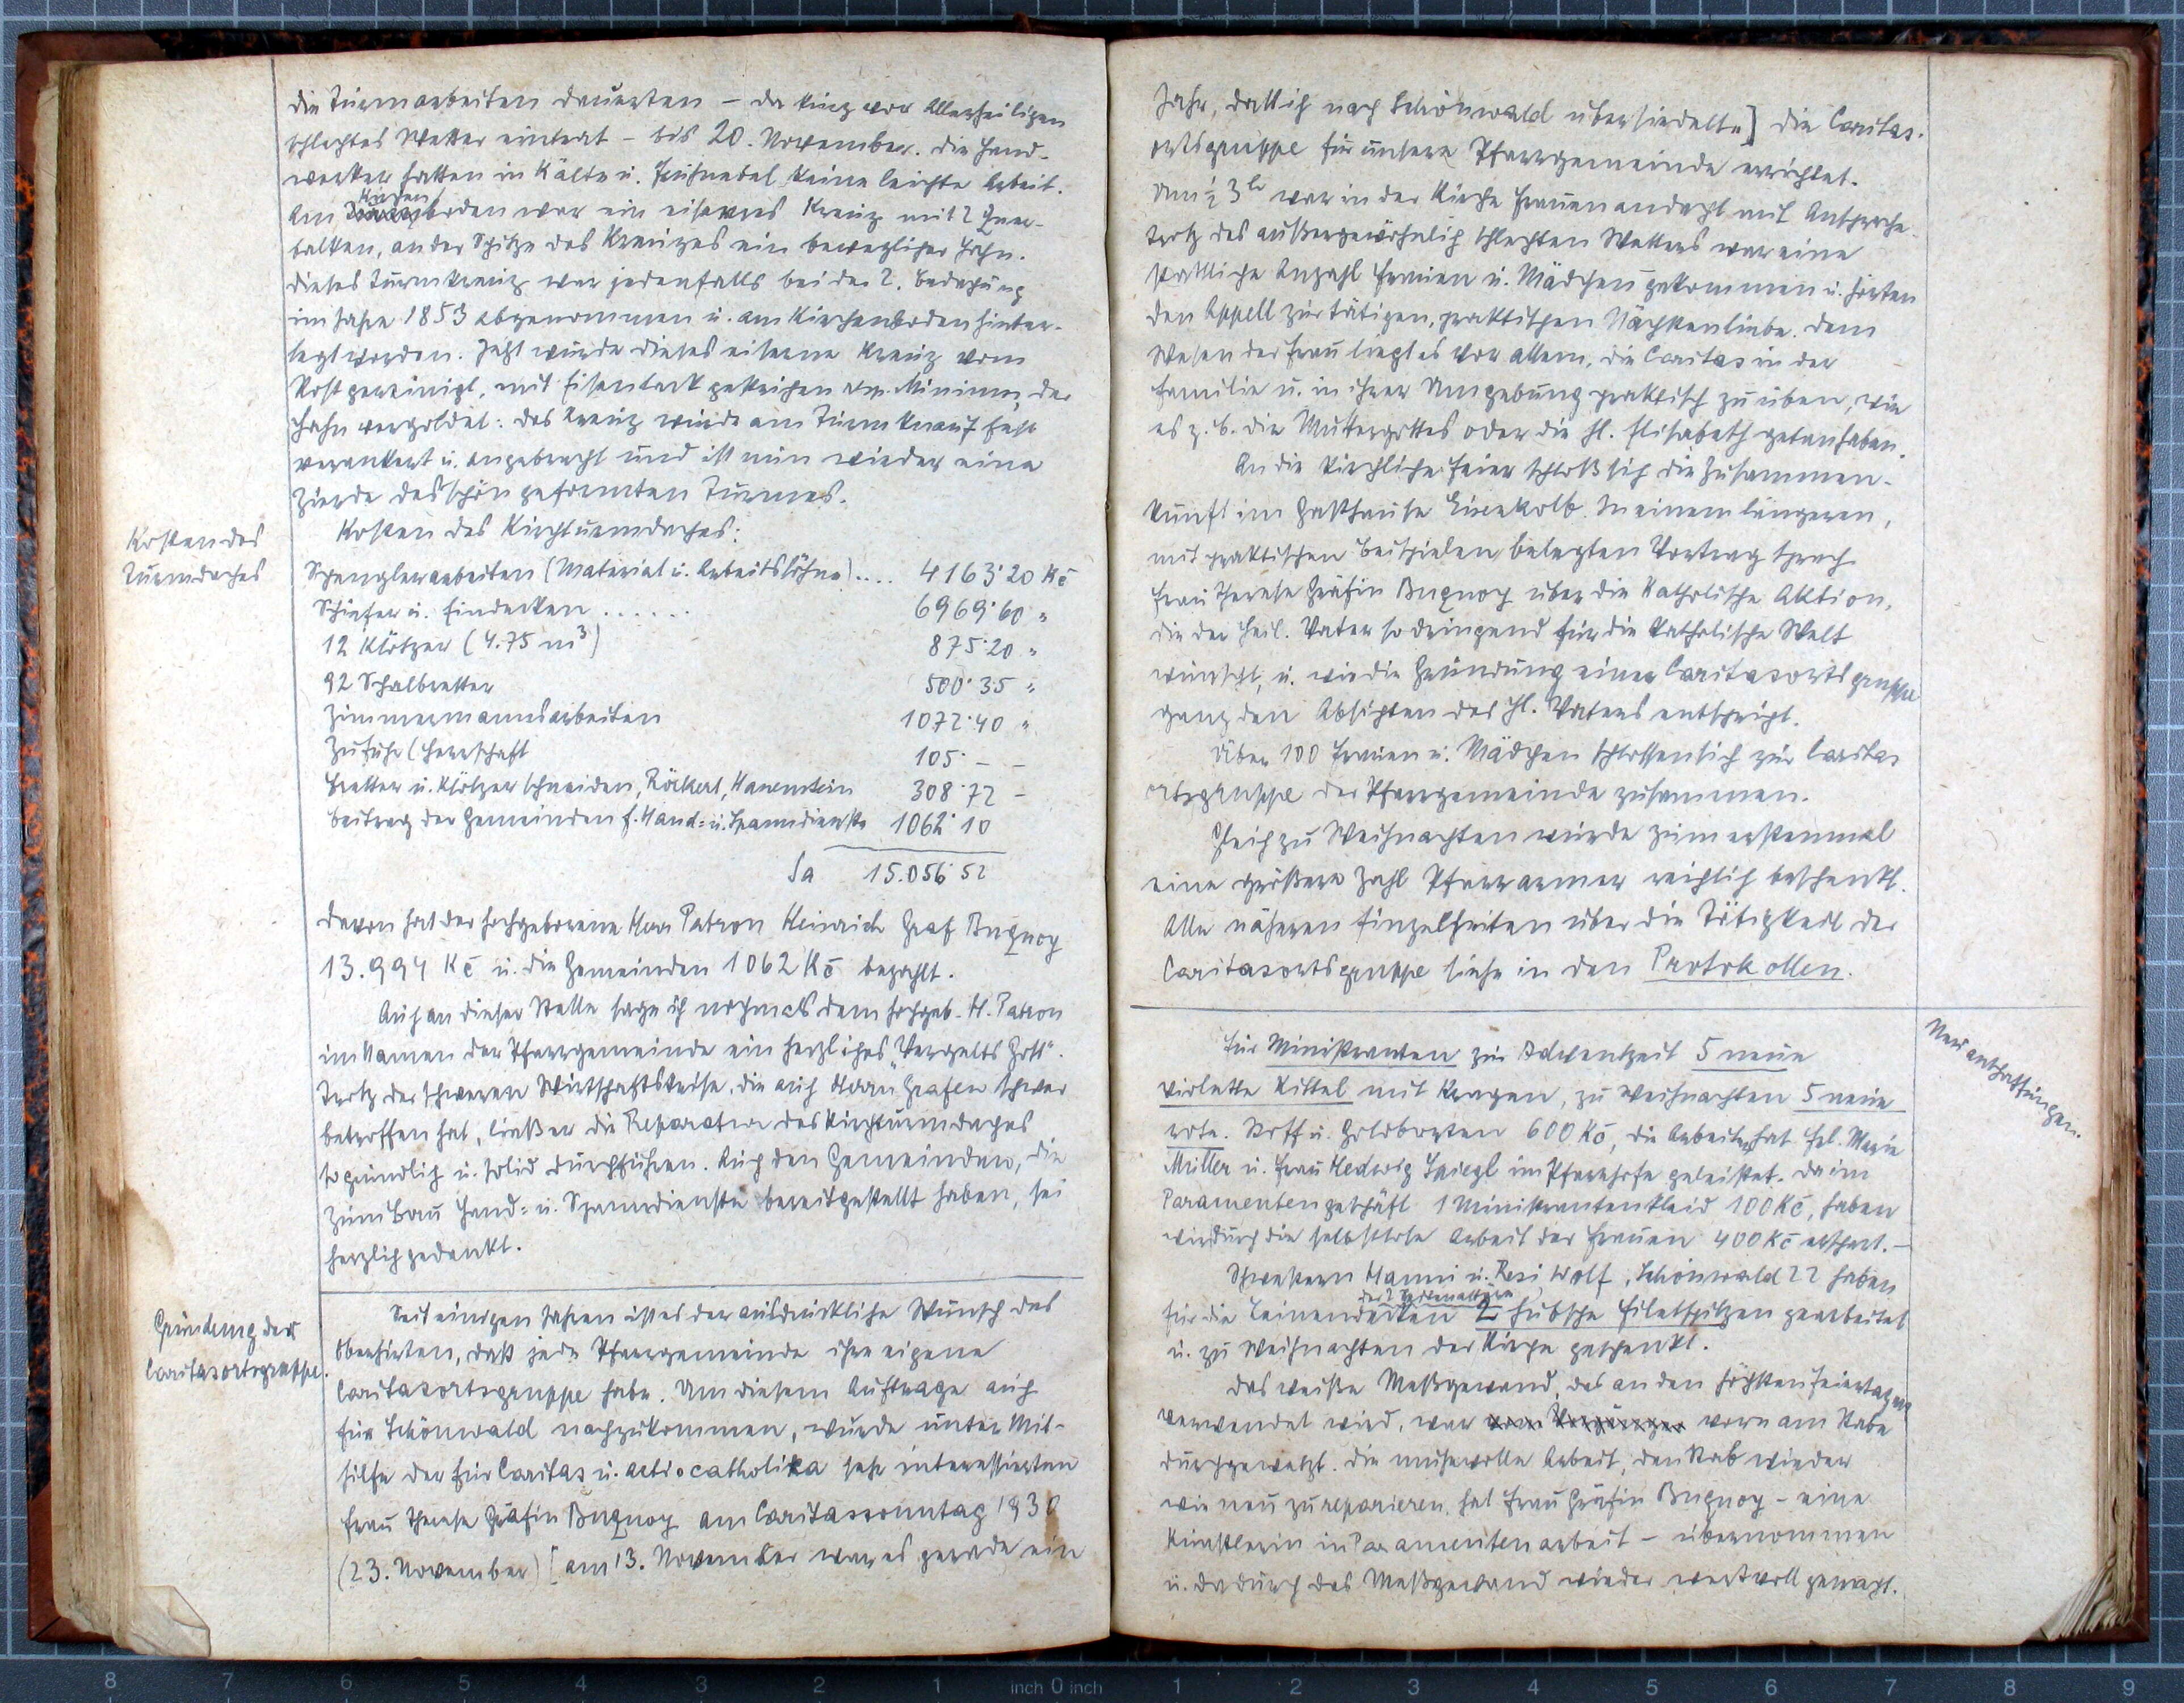 die Turmarbeiten dauerten – da kurz vor Allerheiligen
schlechtes Wetter eintrat – bis 20. November. Die Hand-
werker hatten in Kälte u. Frühnebel keine leichte Arbeit.
Am Kirchenboden war ein eisernes Kreuz mit 2 Quer-
balken, an der Spitze des Kreuzes ein beweglicher Hahn.
Dieses Turmkreuz war jedenfalls bei der 2. Bedachung
im Jahre 1853 abgenommen u. am Kirchenboden hinter-
legt worden. Jetzt wurde dieses eiserne Kreuz vom
Rost gereinigt, mit Eisenlack gestrichen resp. Minium, der
Hahn vergoldet: das Kreuz wurde am Turmknauf fest
verankert u. angebracht und ist nun wieder eine
Zierde des schön geformten Turmes.
Kosten des Turmdaches
Kosten des Kirchturmdaches:
Spenglerarbeiten (Material u. Arbeitslöhne) .... 4163·20 Kč
Schiefer u. Eindecken ...... 6969·60 "
12 Klötzer (4.75 m³) 875·20 "
92 Schalbretter 500·35 "
Zimmermannsarbeiten 1072·40 "
Zufuhr (Herrschaft 105·– –
Bretter u. Klötzer schneiden, Röckert, Hauenstein 308·72 –
Beitrag der Gemeinden f. Hand- u. Spanndienste 1062·10
Sa 15.056·52
Davon hat der hochgeborene Herr Patron Heinrich Graf Buquoy
13.994 Kč u. die Gemeinden 1062 Kč bezahlt.
Auch an dieser Stelle sage ich nochmals dem hochgeb. H. Patron
im Namen der Pfarrgemeinde ein herzliches „Vergelts Gott".
Trotz der schweren Wirtschaftskrise, die auch Herrn Grafen schwer
betroffen hat, ließ er die Reparatur des Kirchturmdaches
so gründlich u. solid durchführen. Auch den Gemeinden, die
zum Bau Hand- u. Spanndienste bereitgestellt haben, sei
herzlich gedankt.
Gründung der
Caritasortsgruppe.
Seit einigen Jahren ist es der ausdrückliche Wunsch des
Oberhirten, daß jede Pfarrgemeinde ihre eigene
Caritasortsgruppe habe. Um diesem Auftrage auch
für Schönwald nachzukommen, wurde unter Mit-
hilfe der für Caritas u. actio catholika sehr interessierten
Frau Therese Gräfin Buquoy am Caritassonntag 1930
(23. November) [am 13. November war es gerade ein
Jahr, daß ich nach Schönwald übersiedelte] die Caritas-
ortsgruppe für unsere Pfarrgemeinde errichtet.
Um ½ 3 h war in der Kirche Frauenandacht mit Ansprache.
Trotz des außergewöhnlich schlechten Wetters war eine
stattliche Anzahl Frauen u. Mädchen gekommen u. hörten
den Appell zur tätigen, praktischen Nächstenliebe. Dem
Wesen der Frau liegt es vor allem, die Caritas in der
Familie u. in ihrer Umgebung praktisch zu üben, wie
es z. B. die Muttergottes oder die hl. Elisabeth getan haben.
An die kirchliche Feier schloß sich die Zusammen-
kunft im Gasthause Lirenkolb. In einem längeren,
mit praktischen Beispielen belegten Vortrag sprach
Frau Therese Gräfin Buquoy über die Katholische Aktion,
die der heil. Vater so dringend für die katholische Welt
wünscht, u. wie die Gründung einer Caritasortsgruppe
ganz den Absichten des hl. Vaters entspricht.
Über 100 Frauen u. Mädchen schlossen sich zur Caritas
ortsgruppe der Pfarrgemeinde zusammen.
Gleich zu Weihnachten wurde zum erstenmal
eine größere Zahl Pfarrarmer reichlich beschenkt.
Alle näheren Einzelheiten über die Tätigkeit der
Caritasortsgruppe siehe in den Protokollen.
Neuanschaffungen.
Für Ministranten zur Adventzeit 5 neue
violette Kittel mit Kragen, zu Weihnachten 5 neue
rote. Stoff u. Goldborten 600 Kč, die Arbeiten hat Frl. Marie
Müller u. Frau Hedwig Spiegl im Pfarrhofe geleistet. Da im
Paramentengeschäft 1 Ministrantenkleid 100 Kč, haben
wir durch die selbstlose Arbeit der Frauen 400 Kč erspart.–
Schwestern Hanni u. Resi Wolf, Schönwald 22 haben
für die Leinendecken der 2 Seitenaltäre 2 hübsche Filetspitzen gearbeitet
u. zu Weihnachten der Kirche geschenkt.
Das weiße Meßgewand, das an den höchsten Feiertagen
verwendet wird, war vorn am Stabe
durchgewetzt. Die mühevolle Arbeit, den Stab wieder
wie neu zu reparieren, hat Frau Gräfin Buquoy – eine
Künstlerin in Paramentenarbeit – übernommen
u. dadurch das Meßgewand wieder wertvoll gemacht.
8 7 6 5 4 3 2 1 inch 0 inch 1 2 3 4 5 6 7 8 9